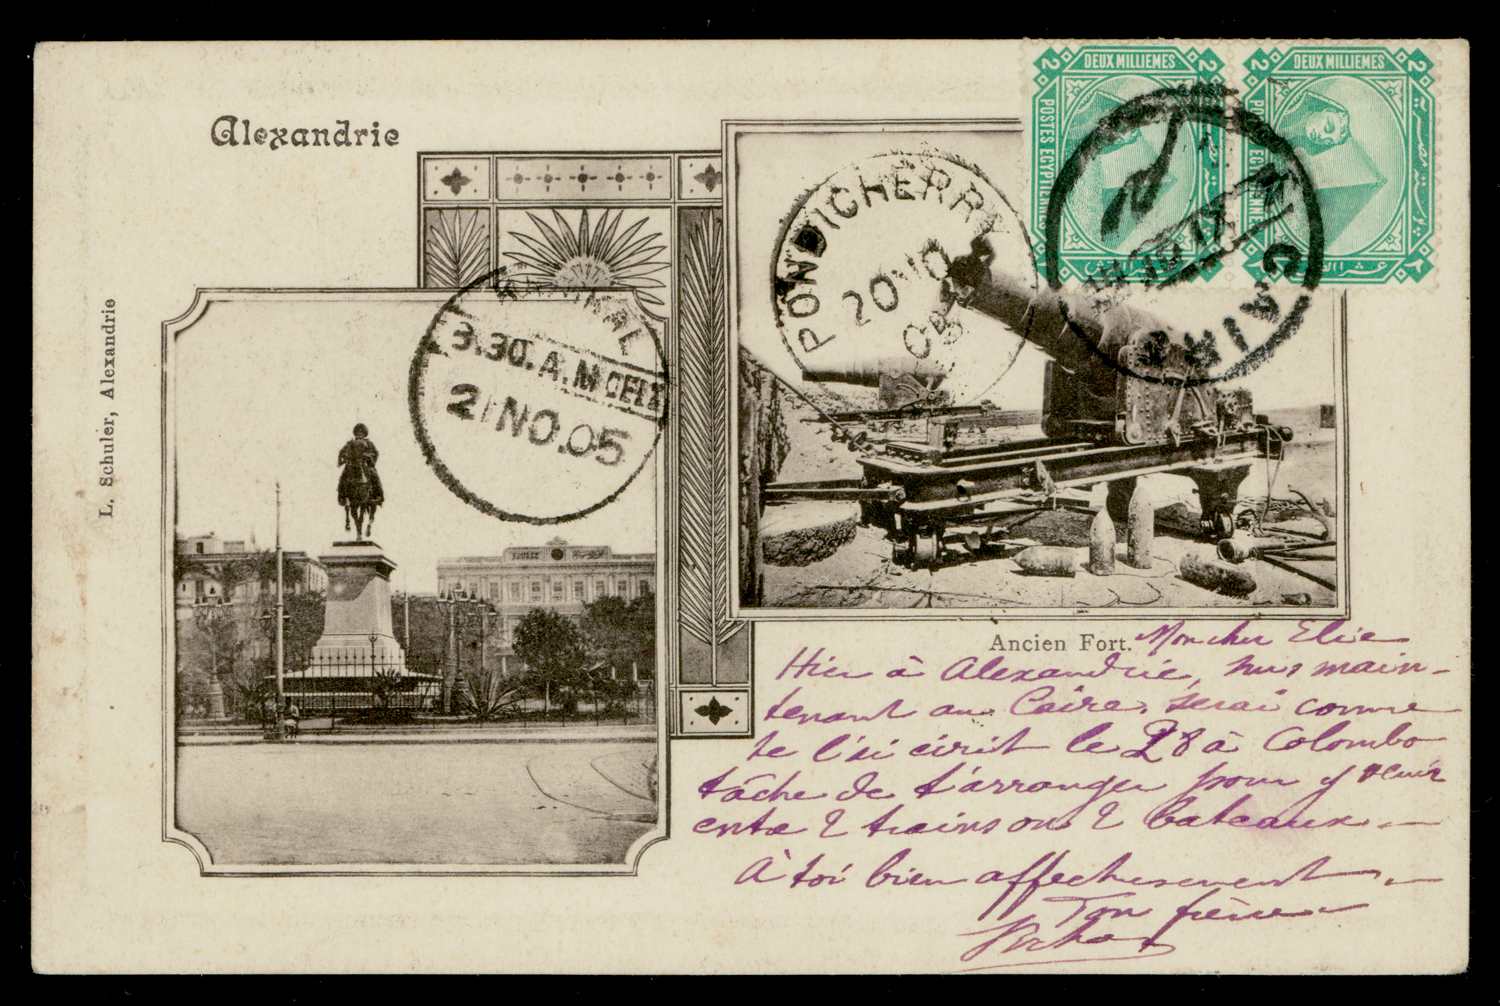 Alexandrie
L. Schuler, Alexandrie
2 DEUX MILLIEMES 2
POSTES EGYPTIENNES
2 DEUX MILLIEMES 2
PONDICHERRY
20 NO
05
CAIRE
3.30.A.M
21 NO.05
Ancien Fort.
Mon cher Elie
Hier à Alexandrie, suis main-
tenant au Caire. serai comme
te l'ai écrit le 28 à Colombo
tâche de t'arranger pour y venir
entre 2 trains ou 2 bateaux.—
À toi bien affectueusement.—
Ton frère